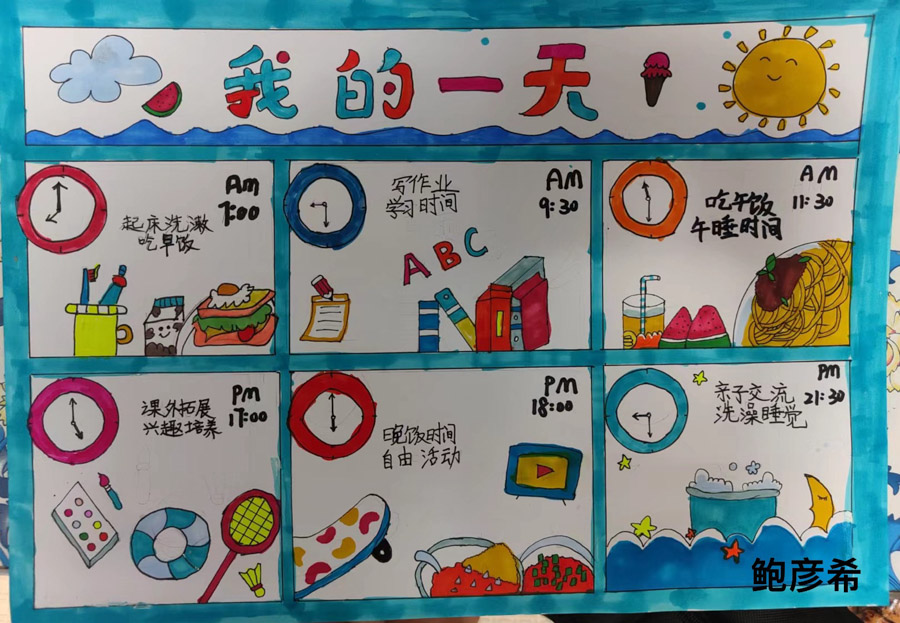 我的一天
AM
7:00
起床洗漱
吃早饭
AM
9:30
写作业
学习时间
ABC
AM
11:30
吃午饭
午睡时间
PM
17:00
课外拓展
兴趣培养
PM
18:00
晚饭时间
自由活动
PM
21:30
亲子交流
洗澡睡觉
鲍彦希